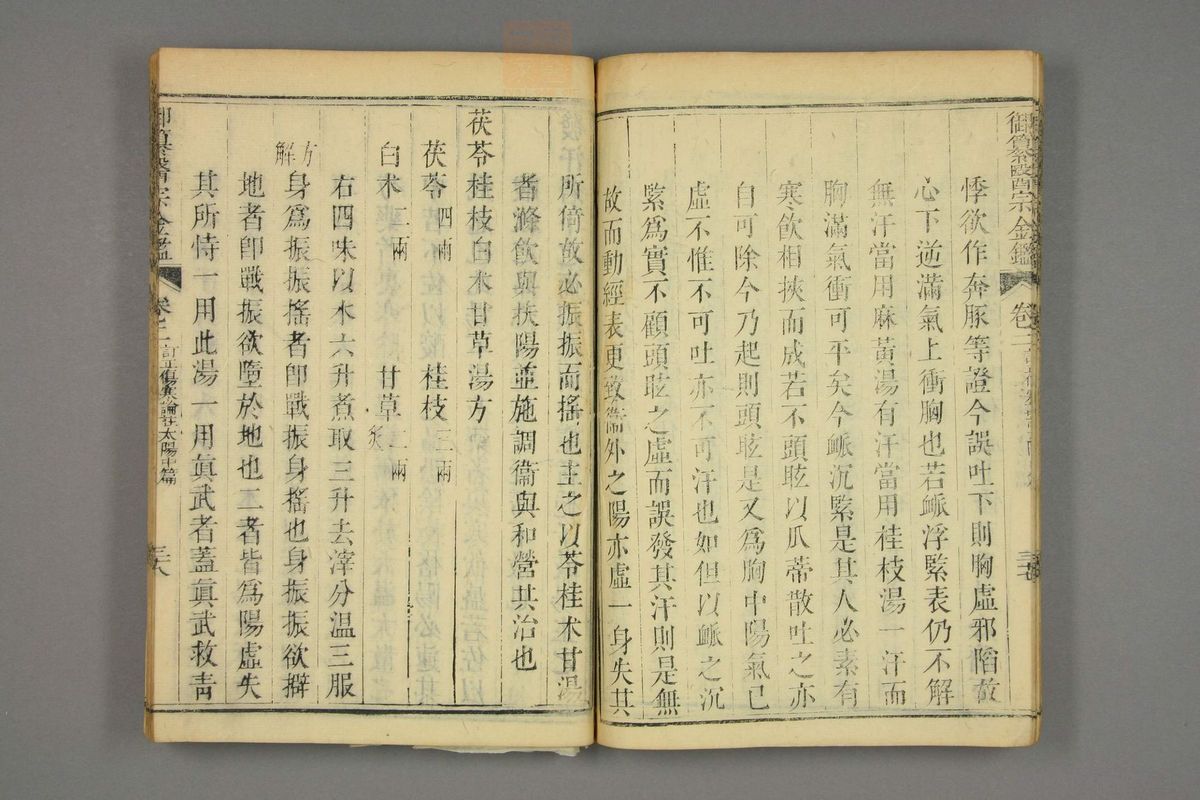 御纂醫宗金鑑 卷二
悸欲作奔豚等證今誤吐下則胸虛邪陷故
心下逆滿氣上衝胸也若脈浮緊表仍不解
無汗當用麻黃湯有汗當用桂枝湯一汗而
胸滿氣衝可平矣今脈沉緊是其人必素有
寒飲相挾而成若不頭眩以瓜蒂散吐之亦
自可除今乃起則頭眩是又爲胸中陽氣已
虛不惟不可吐亦不可汗也如但以脈之沉
緊爲實不顧頭眩之虛而誤發其汗則是無
故而動經表更致衞外之陽亦虛一身失其
所倚故必振振而搖也主之以苓桂朮甘湯
者滌飲與扶陽並施調衞與和營共治也
茯苓桂枝白朮甘草湯方
茯苓四兩 桂枝三兩
白朮二兩 甘草二兩炙
右四味以水六升煮取三升去滓分溫三服
方解 身爲振振搖者卽戰振身搖也身振振欲擗
地者卽戰振欲墮於地也二者皆爲陽虛失
其所恃一用此湯一用眞武者蓋眞武救靑
御纂醫宗金鑑 卷二 訂正傷寒論註太陽中篇 三十八